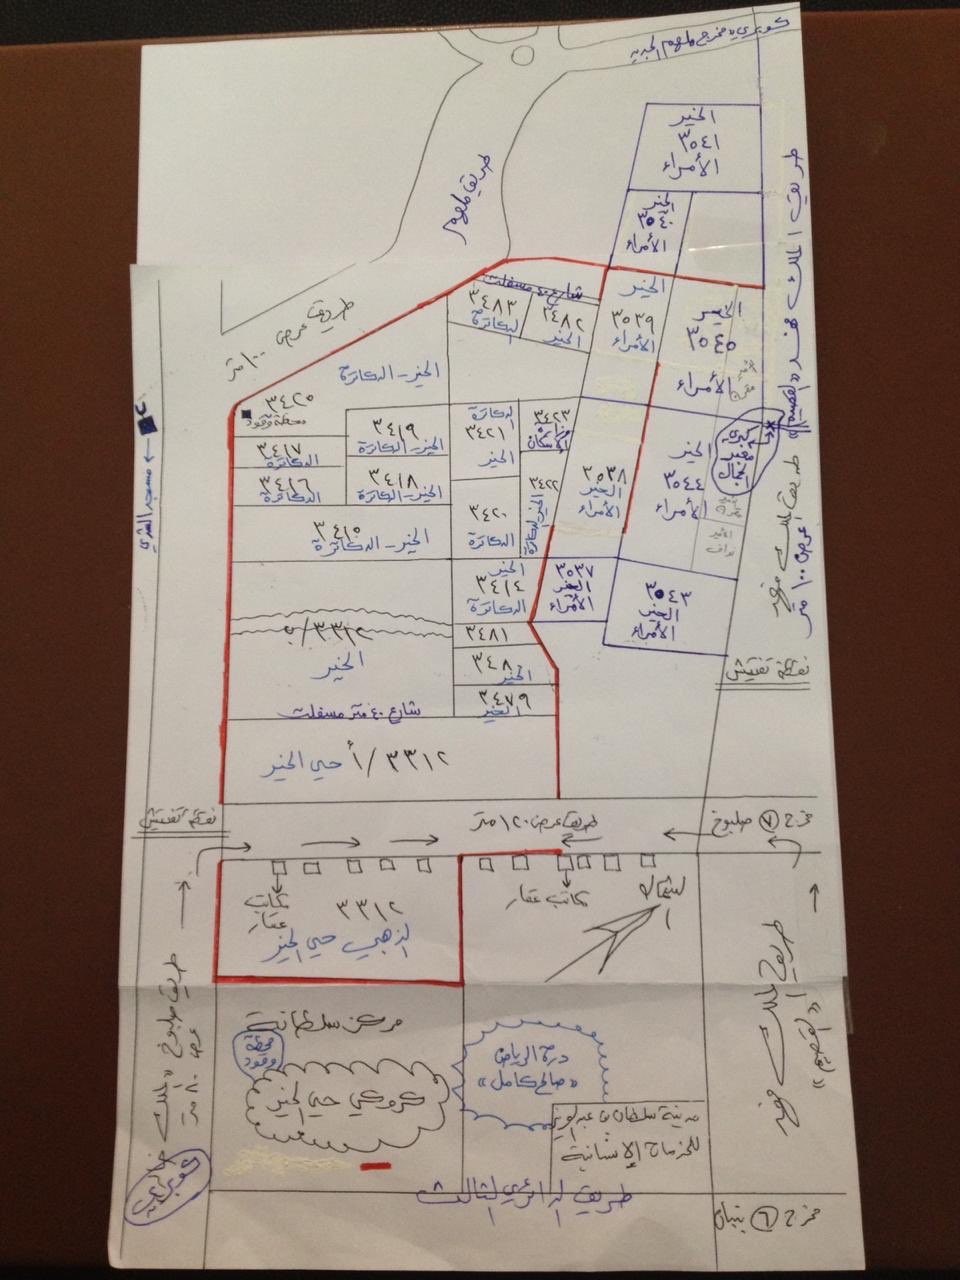 كوبري مخرج ملهم الجديد
الخير
٣٥٤١
الأمراء
طريق ملهم
الخير
٣٥٤٠
الأمراء
طريق الملك فهد «القصيم»
شارع ٤٠ مسفلت
٣٤٨٣
الدكاترة
٣٤٨٢
الخير
الخير
٣٥٣٩
الأمراء
الخير
٣٥٤٥
الأمراء
طريق عرض ١٠٠ متر
الخير - الدكاترة
٣٤٢٥
محطة وقود
٣٤١٧
الدكاترة
٣٤١٦
الدكاترة
٣٤١٩
الخير - الدكاترة
٣٤١٨
الخير - الدكاترة
٣٤١٥
الخير - الدكاترة
الدكاترة
٣٤٢١
الخير
٣٤٢٠
الدكاترة
٣٤٢٣
الإسكان
٣٤٢٢
الخير الدكاترة
٣٥٣٨
الخير
الأمراء
الخير
٣٥٤٤
الأمراء
كبري
الجمال
الأمير
نواف
طريق الملك فهد
عرض ١٠٠ متر
مسجد الشثري
الخير
٣٤١٤
الدكاترة
٣٥٣٧
الخير
الأمراء
٣٥٤٣
الخير
الأمراء
٣٣١٢/ب
الخير
٣٤٨١
٣٤٨٠
الخير
٣٤٧٩
الخير
شارع ٤٠ متر مسفلت
نقطة تفتيش
٣٣١٢/أ حي الخير
نقطة تفتيش
طريق عرض ١٢٠ متر
مخرج ٨ صلبوخ
مكاتب
عقار
مكاتب عقار
الشمال
٣٣١٢
الذهبي حي الخير
طريق صلبوخ
عرض ٨٠ متر
طريق الملك فهد
«القصيم»
مركز سلطانة
محطة
وقود
كروكي حي الخير
درة الرياض
«صالح كامل»
مدينة سلطان بن عبدالعزيز
للخدمات الإنسانية
طريق الدائري الثالث
مخرج ٦ بنبان